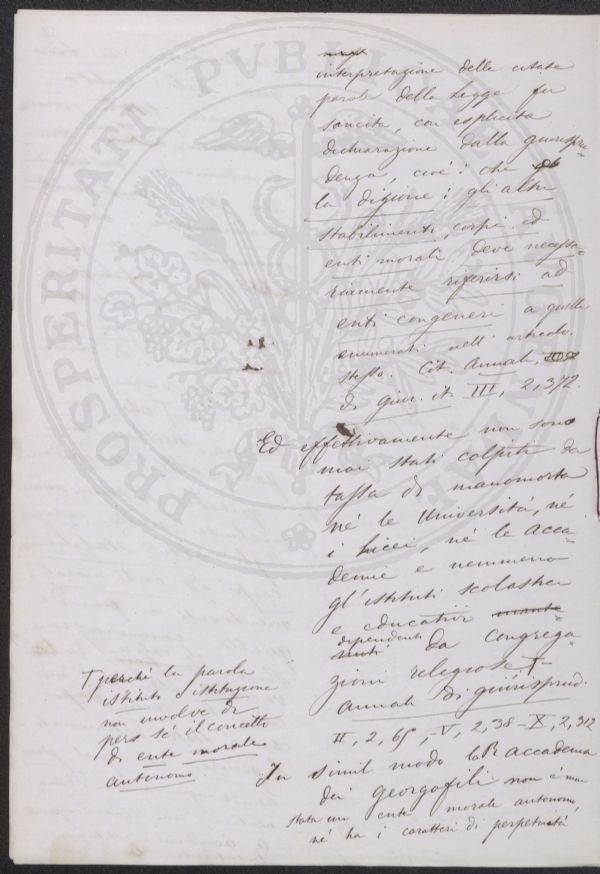 interpretazione delle citate
parole della Legge fu
sancita, con esplicita
dichiarazione dalla giurispru-
denza, cioè: che
la dizione: gli altri
stabilimenti, corpi ed
enti morali deve necessa-
riamente riferirsi ad
enti congeneri a quelli
enumerati nell' articolo
stesso. Cit. Annali,
di giur. it. III, 2, 372.
Ed effettivamente non sono
mai stati colpiti da
tassa di manomorta
né le Università, né
i Licei, né le Acca
demie e nemmeno
gl'istituti scolastici
e educativi
dipendenti da Congrega
zioni religiose T
Annali di giurisprud.
II, 2, 65, -V, 2, 38 -X, 2, 312
T perché la parola
istituto o istituzione
non involve di
per sé il concetto
di ente morale
autonomo
In simil modo la R Accademia
dei georgofili non è mai
stata un ente morale autonomo,
né ha i caratteri di perpetuità
PROSPERITATI PVBLICAE